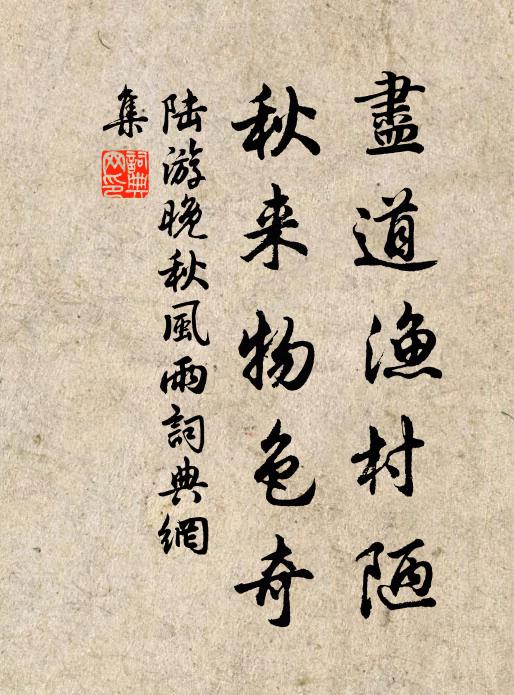 盡道漁村陋
秋来物色奇
陆游晚秋風雨詞典網
集
詞典
网印